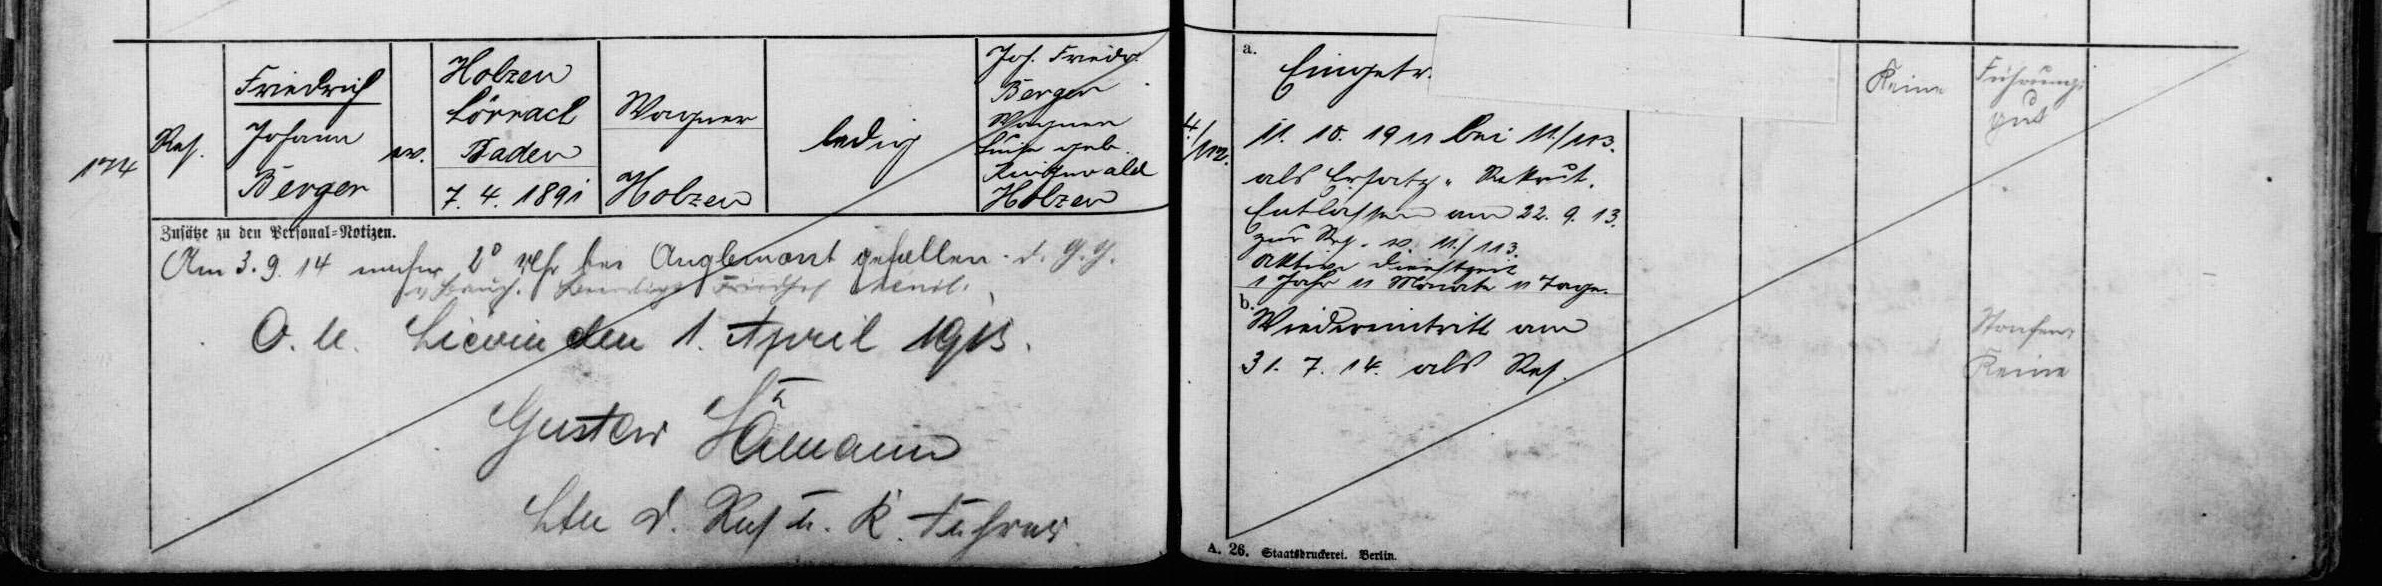 174
Res.
Friedrich
Johann
Berger
ev.
Holzen
Lörrach
Baden
7. 4. 1891
Wagner
Holzen
ledig
Joh. Friedr.
Berger
Wagner
Luise geb.
Holzen
Zusätze zu den Personal-Notizen.
Am 3. 9. 14 nachm. Uhr bei Anglemont gefallen.
Friedhof Ménil.
O. U. Liévin den 1. April 1915.
Gustav
Ltn d. Res u. K. Führer
4./112.
a. Eingetr.
11. 10. 1911 bei 11./113.
als Ersatz-Rekrut.
Entlassen am 22. 9. 13.
zur Res. v. 11./113.
Aktive Dienstzeit
1 Jahr 11 Monate 11 Tage.
b. Wiedereintritt am
31. 7. 14. als Res.
Keine
Führung:
gut
Strafen:
Keine
A. 26. Staatsdruckerei. Berlin.